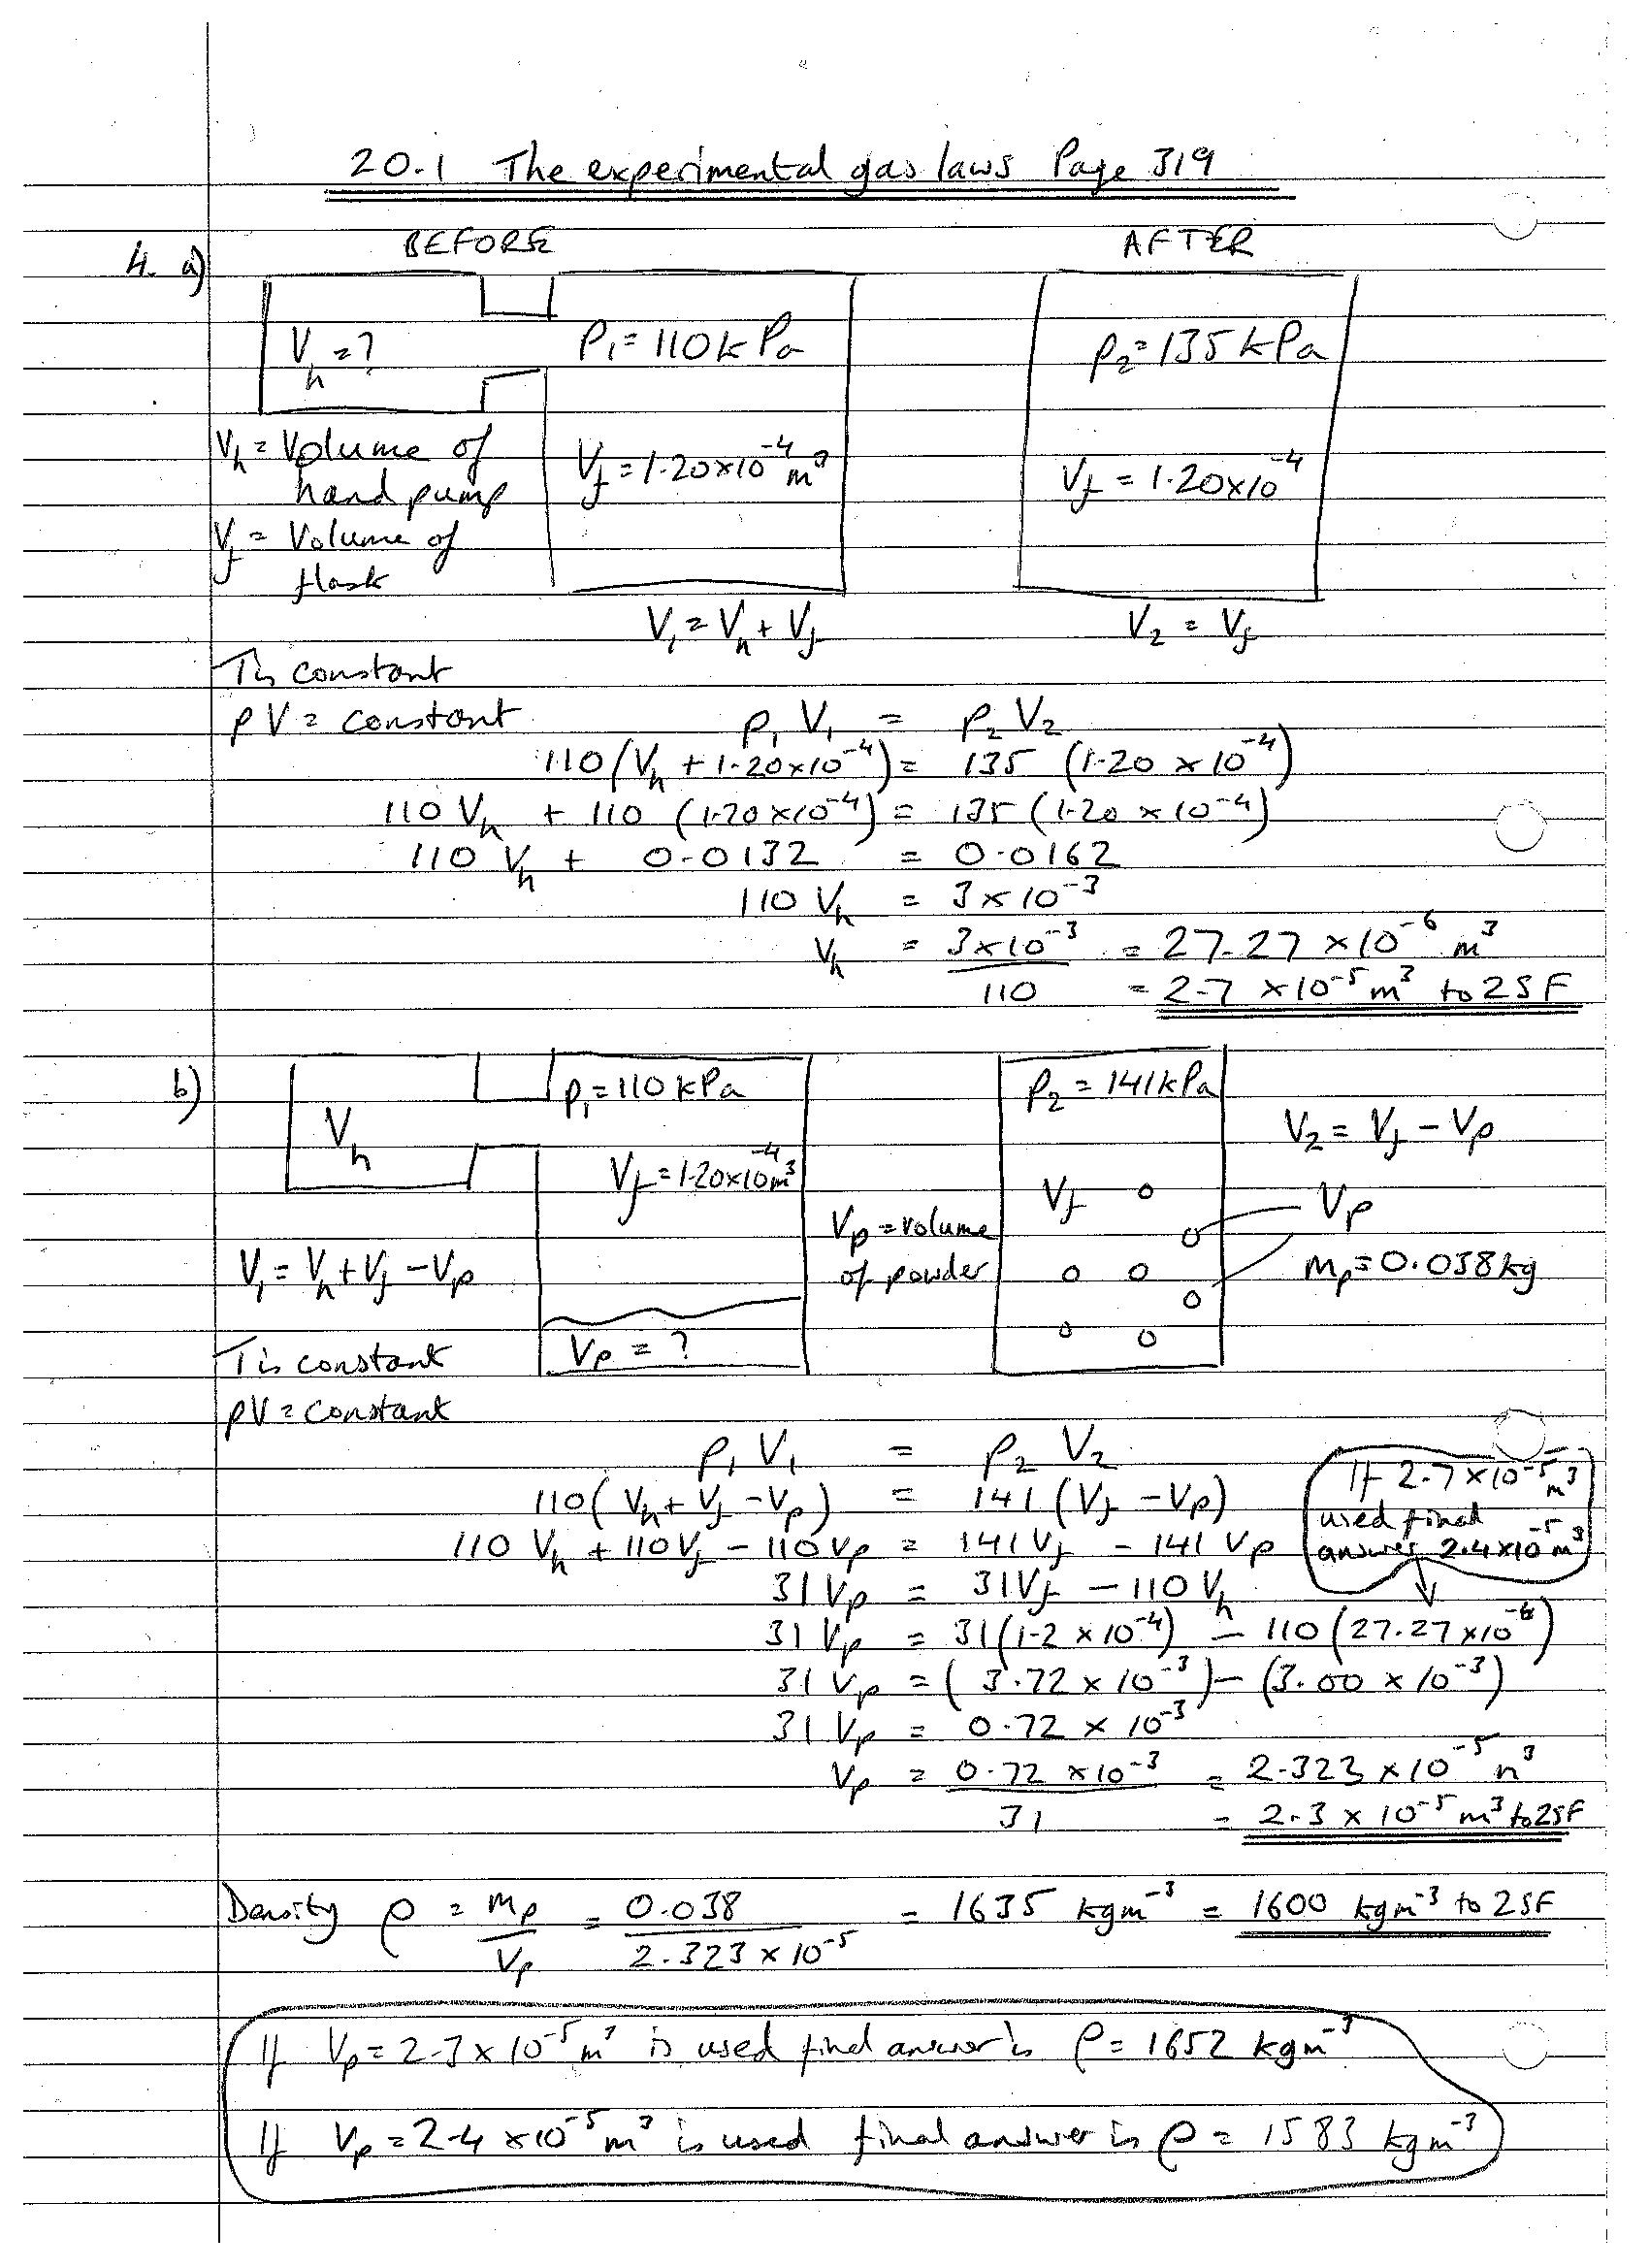 20.1 The experimental gas laws Page 319
BEFORE AFTER
4. a)
Vh = ? P1 = 110 kPa p2 = 135 kPa
Vh = Volume of hand pump
Vf = 1.20 × 10^-4 m^3 Vf = 1.20 × 10^-4
Vf = Volume of flask
V1 = Vh + Vf V2 = Vf
T is constant
pV = constant p1 V1 = p2 V2
110 (Vh + 1.20 × 10^-4) = 135 (1.20 × 10^-4)
110 Vh + 110 (1.20 × 10^-4) = 135 (1.20 × 10^-4)
110 Vh + 0.0132 = 0.0162
110 Vh = 3 × 10^-3
Vh = 3 × 10^-3 / 110 = 27.27 × 10^-6 m^3
= 2.7 × 10^-5 m^3 to 2SF
b)
p1 = 110 kPa p2 = 141 kPa
Vh V2 = Vf - Vp
Vf = 1.20 × 10^-4 m^3 Vf Vp
Vp = volume of powder
V1 = Vh + Vf - Vp mp = 0.038 kg
Vp = ?
T is constant
pV = constant
p1 V1 = p2 V2
110 (Vh + Vf - Vp) = 141 (Vf - Vp)
110 Vh + 110 Vf - 110 Vp = 141 Vf - 141 Vp
If 2.7 × 10^-5 m^3
used final
answer 2.4 × 10^-5 m^3
31 Vp = 31 Vf - 110 Vh
31 Vp = 31 (1.2 × 10^-4) - 110 (27.27 × 10^-6)
31 Vp = (3.72 × 10^-3) - (3.00 × 10^-3)
31 Vp = 0.72 × 10^-3
Vp = 0.72 × 10^-3 / 31 = 2.323 × 10^-5 m^3
= 2.3 × 10^-5 m^3 to 2SF
Density ρ = mp / Vp = 0.038 / 2.323 × 10^-5 = 1635 kgm^-3 = 1600 kgm^-3 to 2SF
If Vp = 2.3 × 10^-5 m^3 is used final answer is ρ = 1652 kgm^-3
If Vp = 2.4 × 10^-5 m^3 is used final answer is ρ = 1583 kgm^-3